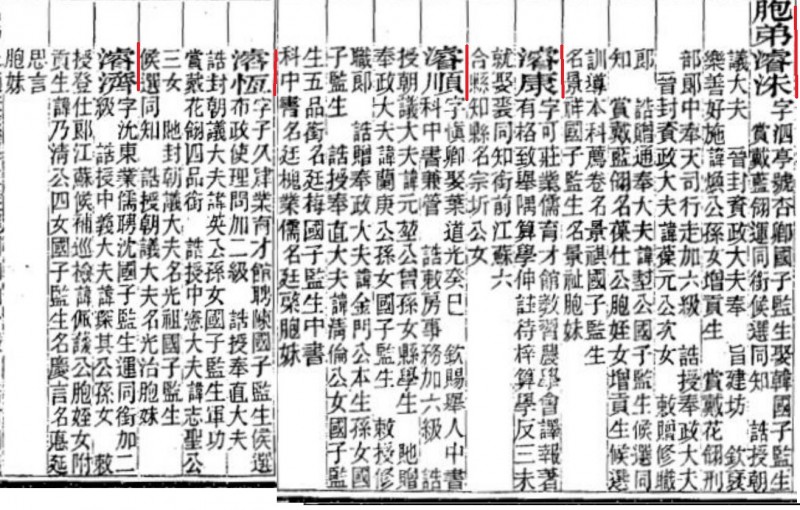 胞弟濬洙字泗亭號杏鄉國子監生娶韓國子監生
賞戴藍翎運同銜候選同知 誥授朝
議大夫 晉封資政大夫奉 旨建坊 欽褒
樂善好施諱煥公孫女增貢生 賞戴花翎刑
部郎中奉天司行走加六級 誥授奉政大夫
晉封資政大夫諱葆元公次女 敕贈修職
郎 誥贈通奉大夫諱 公國子監生候選同
知 賞戴藍翎名葆仕公胞姪女增貢生候選
訓導本科薦卷名景祺國子監生
名景祥國子監生名景祉胞妹
濬康字可莊業儒育才館教習農學會譯報著
有格致舉隅算學伸註待梓算學反三未
就娶裴同知銜前江蘇六
合縣知縣名宗圻公女
濬順字愼卿娶葉道光癸巳 欽賜舉人中書
科中書兼管 誥敕房事務加六級 誥
授朝議大夫諱元堃公曾孫女縣學生 貤贈
奉政大夫諱蘭庚公孫女國子監生 敕授修
職郎 誥贈奉政大夫諱金門公本生孫女國
子監生 誥授奉直大夫諱淸倫公女國子監
生五品銜名廷梅國子監生中書
科中書名廷槐業儒名廷棨胞妹
濬恆字子久肄業育才館聘陳國子監生候選
布政使理問加二級 誥授奉直大夫
誥封朝議大夫諱英公孫女國子監生軍功
賞戴花翎四品銜 誥授中憲大夫諱志聖公
三女 貤封朝議大夫名光祖國子監生
候選同知 誥授朝議大夫名光治胞妹
濬濟字沈東業儒聘沈國子監生運同銜加二
級 誥授中義大夫諱琛其公孫女 敕
授登仕郎江蘇候補巡檢諱佩 公胞姪女附
貢生諱乃淸公四女國子監生名慶言名惪延
思言
胞妹